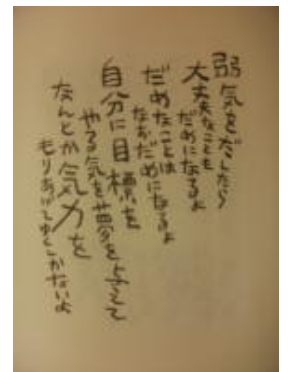 弱気をだしたら
大丈夫なことも
だめになるよ
だめなことは
なおだめになるよ
自分に目標を
やる気を夢を与えて
なんとか気力を
もりあげてゆくしかないよ